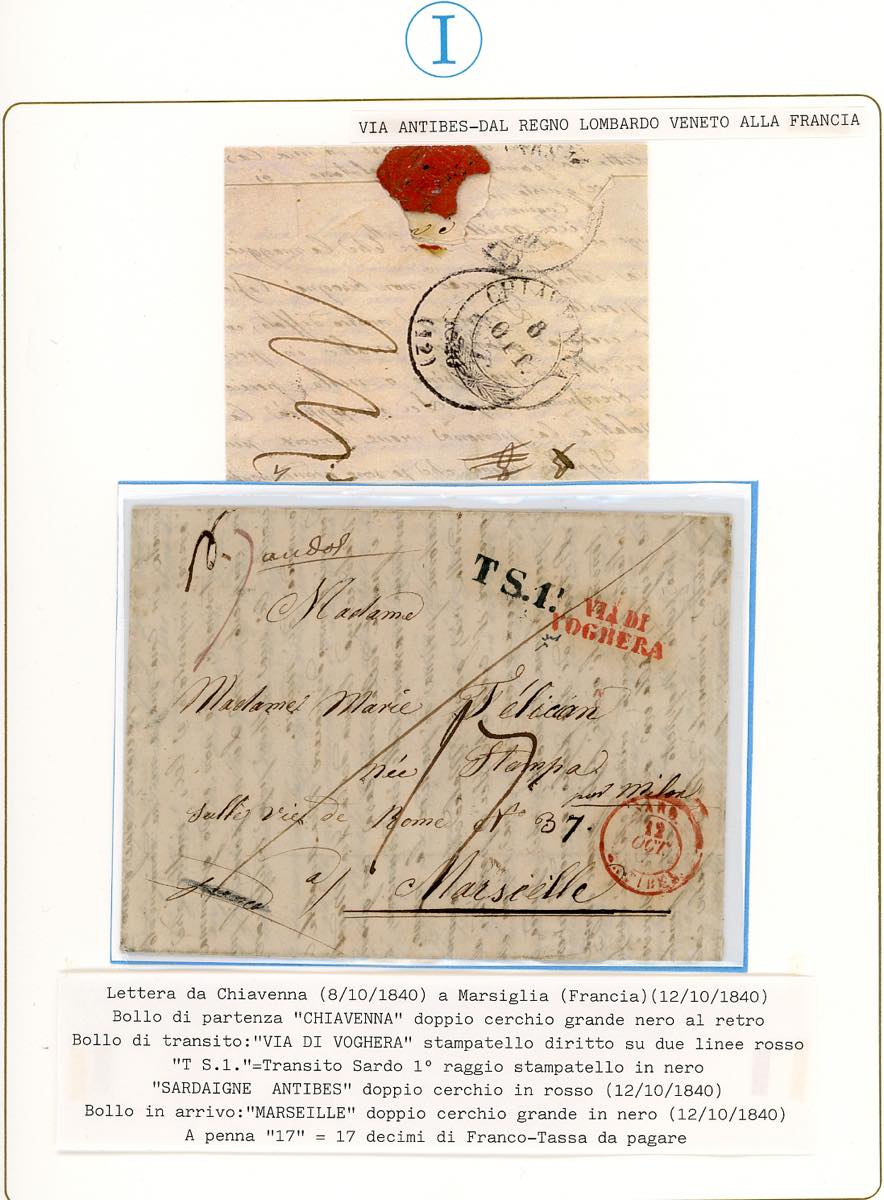 I
VIA ANTIBES-DAL REGNO LOMBARDO VENETO ALLA FRANCIA
CHIAVENNA
8
OTT.
(12)
T S.1.
VIA DI
VOGHERA
Madame
Madame Marie Félican
née Stampa
par Milan
Rome N° 37.
12
OCT
17
a/ Marseille
Lettera da Chiavenna (8/10/1840) a Marsiglia (Francia)(12/10/1840)
Bollo di partenza "CHIAVENNA" doppio cerchio grande nero al retro
Bollo di transito:"VIA DI VOGHERA" stampatello diritto su due linee rosso
"T S.1."=Transito Sardo 1° raggio stampatello in nero
"SARDAIGNE  ANTIBES" doppio cerchio in rosso (12/10/1840)
Bollo in arrivo:"MARSEILLE" doppio cerchio grande in nero (12/10/1840)
A penna "17" = 17 decimi di Franco-Tassa da pagare